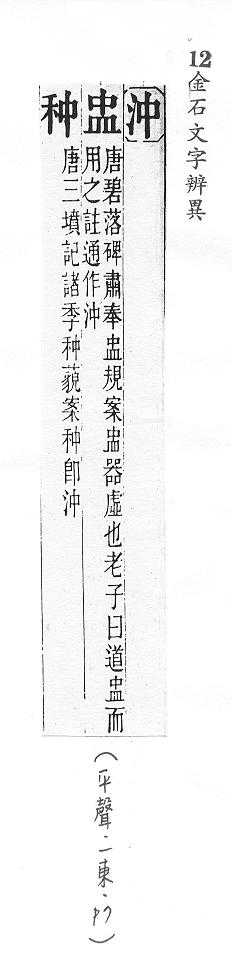 12金石文字辨異
〔沖〕
盅 唐碧落碑肅奉盅規案盅器虛也老子曰道盅而
用之註通作沖
种 唐三墳記諸季种藐案种卽沖
(平聲·一東·p7)